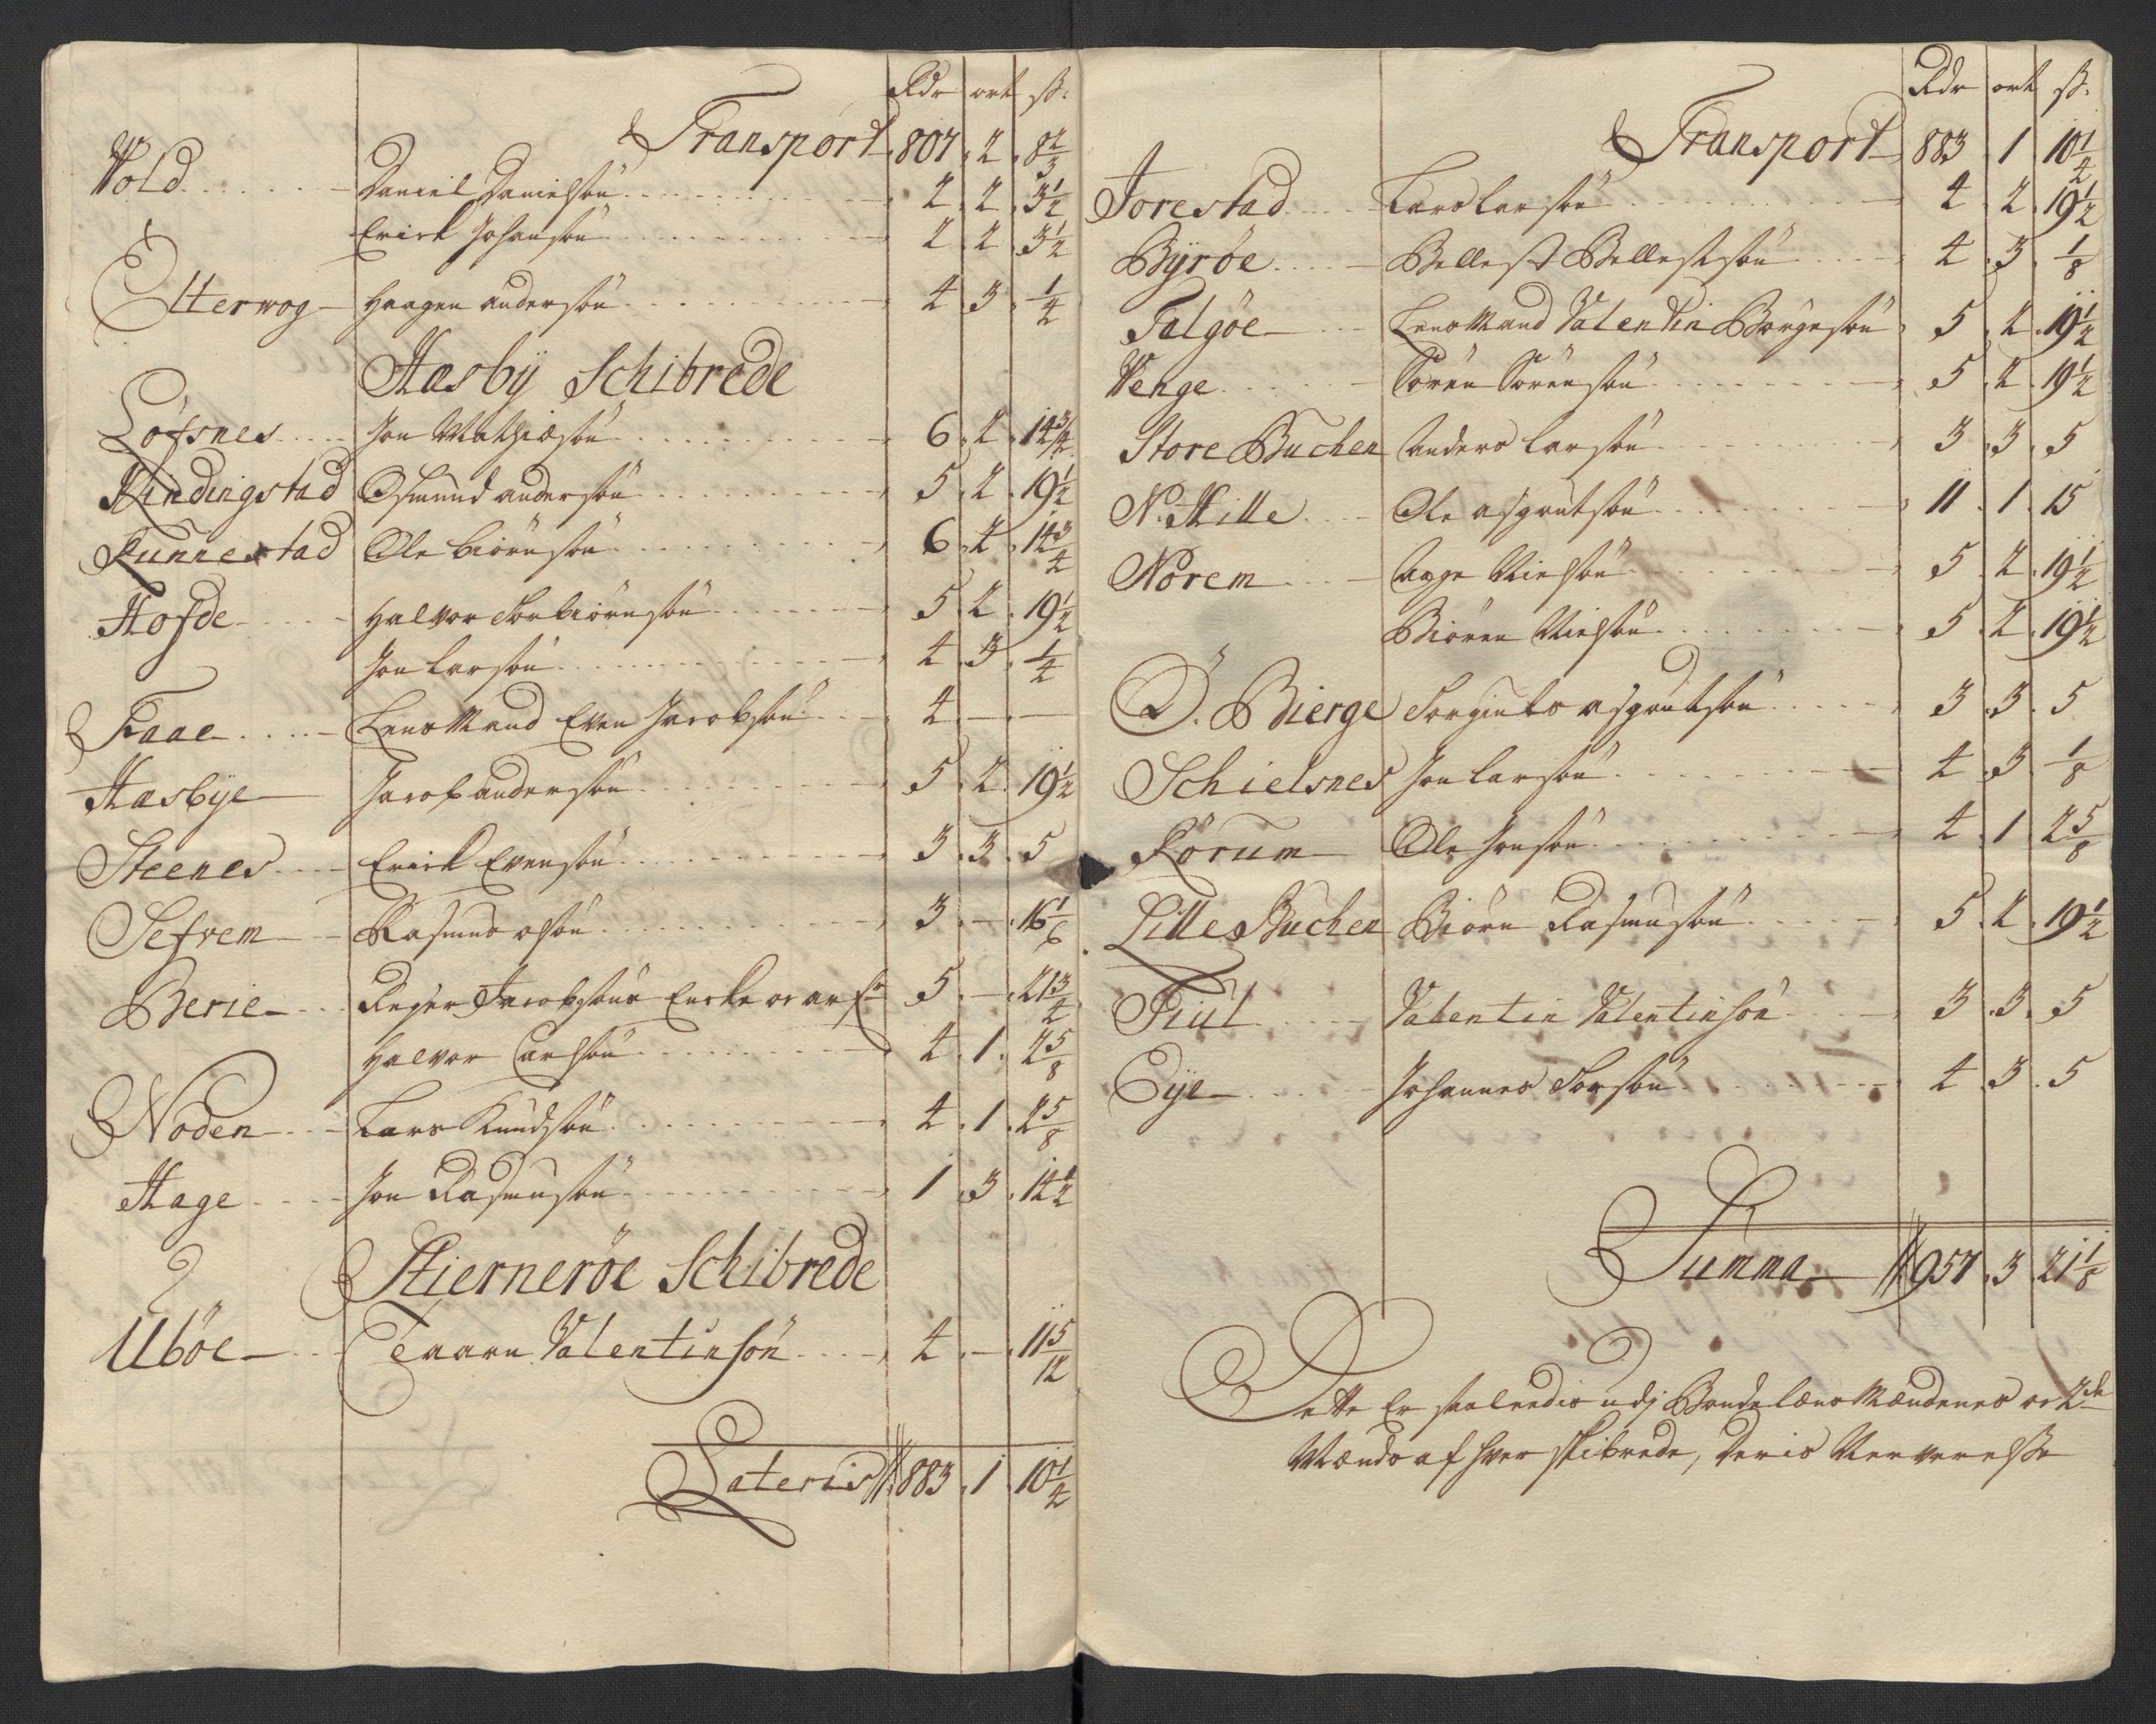 Rdr ort ß.
Transport 807 . 2 . 8 2/3
Vold Daniel Danielsön 2 . 2 . 3 1/2
Erick Johansön 2 . 2 . 3 1/2
Etterwog Haagen andersön 4 . 3 . 1/4
Hasbÿ Schibrede
Löfsnes Jon Mathiasön 6 . 2 . 14 3/4
Kindingstad Osmund andersön 5 . 2 . 19 1/2
Runnestad Ole biörnsön 6 . 2 . 14 3/4
Hofde Halvor Torbiörnsön 5 . 2 . 19 1/2
Jon Larsön 4 . 3 . 1/4
Faae Lensmand Even Jacobsön 4 . - . -
Hasbÿe Jacob andersön 5 . 2 . 19 1/2
Steenes Erick Evensön 3 . 3 . 5
Sefrem Rasmus olsön 3 . - . 16 1/6
Berie Reÿer Jacobsöns Encke oc arfr 5 . - . 21 3/4
Halvor Carlsön 4 . 1 . 2 5/8
Noden Lars Knudsön 4 . 1 . 2 5/8
Hage Jon Rasmusön 1 . 3 . 14 1/2
Hierneröe Schibrede
Uböe Taarn Valentinsön 4 . - . 11 5/12
Lateris 883 . 1 . 10 1/4
Rdr ort ß.
Transport 883 1 10 1/4
Jorestad Lars Larsön 4 . 2 . 19 1/2
Bÿröe Bellest Bellestsön 4 . 3 . 1/8
Talgöe Lensmand Valentin Börgesön 5 . 2 . 19 1/2
Venge Sören Sörensön 5 . 2 . 19 1/2
Store Buchen Anders Larsön 3 . 3 . 5
N. Hille Ole asgoutsön 11 . 1 . 15
Norem Aage Nielsön 5 . 2 . 19 1/2
Biören Nielsön 5 . 2 . 19 1/2
Ö. Bierge Torgiuls asgoutsön 3 . 3 . 5
Schielsnes Jon Larsön 4 . 3 . 1/8
Rörum Ole Jonsön 4 . 1 2 5/8
Lille Buchen Biörn Rasmusön 5 . 2 . 19 1/2
Fiul Valentin Valentinsön 3 . 3 . 5
Eÿe Johannes Torsön 4 . 3 . 5
Summa 957 . 3 . 21 1/8
Dette Er saaledis udj Bondelænsmændenes oc 2de
Mænds af hver skibrede, deris Nerverelse